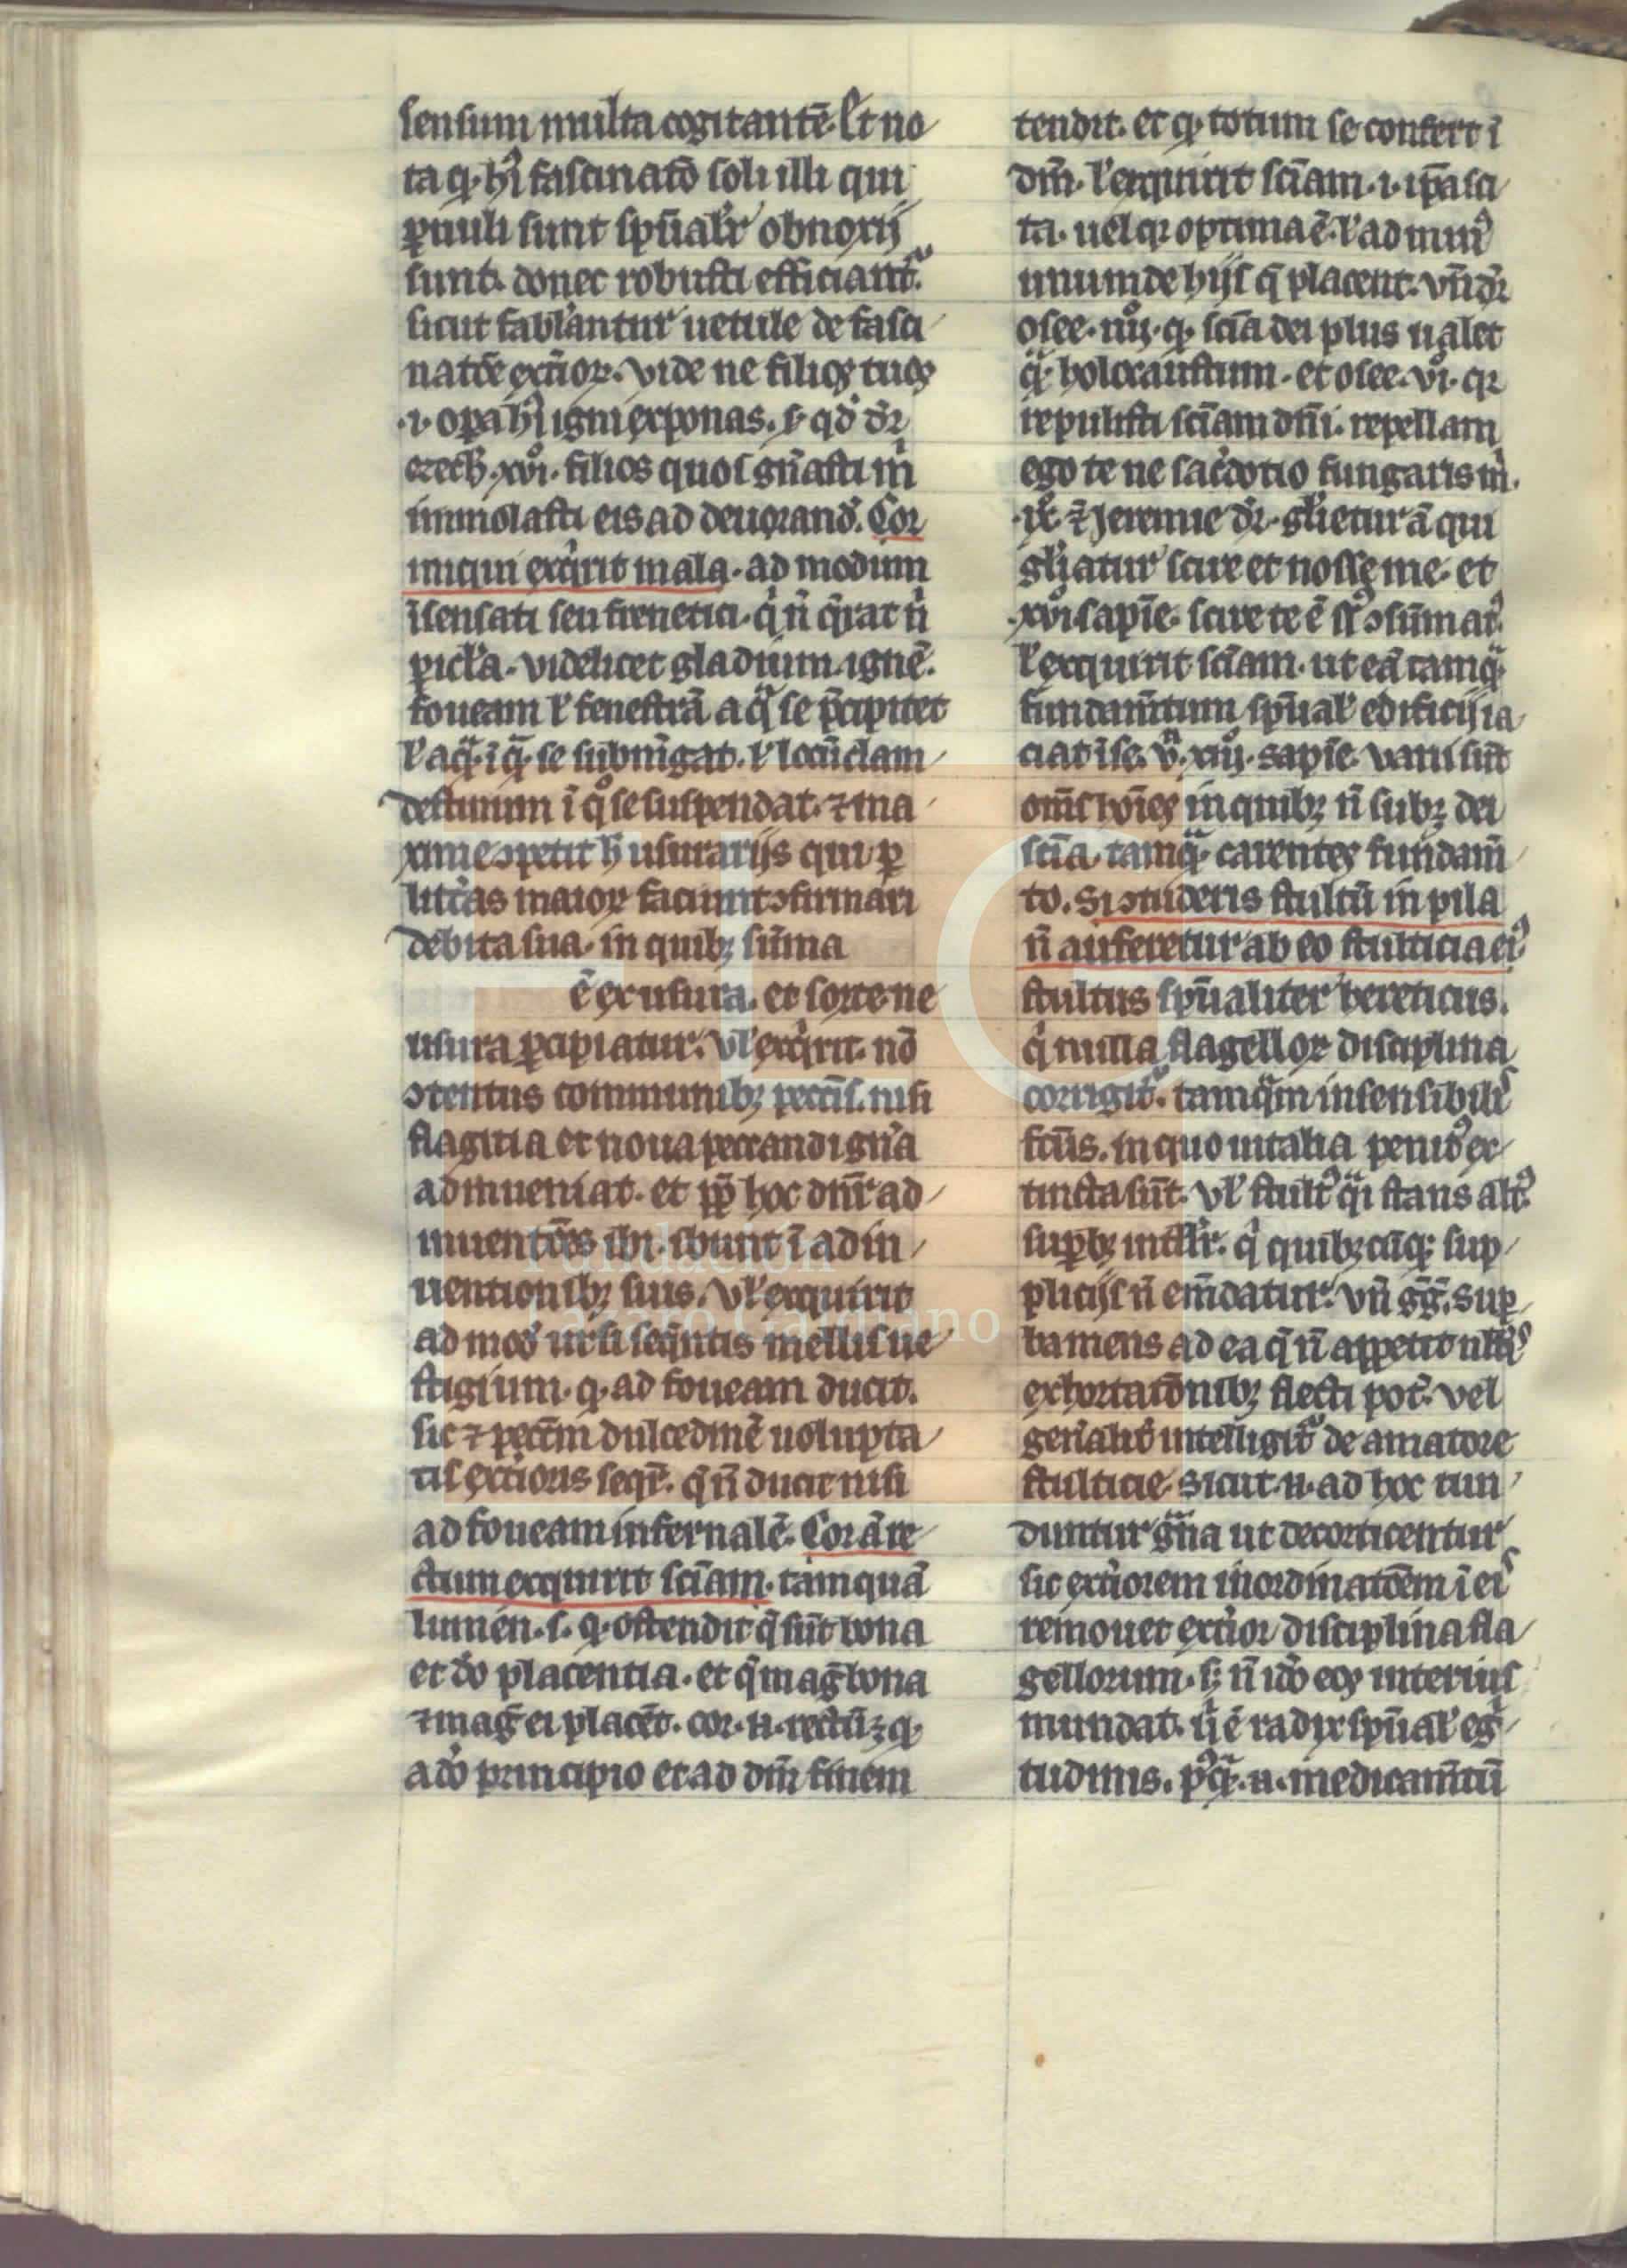 sensum multa cogitantē. Et no
ta ꝙ. hͥ fascinatō soli illi qui
ꝑuuli sunt spūalr̕ obnoxij
sunt. donec robusti efficiant᷑.
sicut fabl̕antur uetule de fasci
natōe ext̕ioꝝ. vide ne filios tuos
.i. oꝑa hͥ igni exponas. qd̕ dr̕
ezech̕. xvi. filios quos gn̄asti m̄
immolasti eis ad deuorand̕. Cor
iniqui exq̕rit mala. ad modum
īsensati seu frenetici. qͥ n̄ q̄rat nͥ
ꝑicl̕a. videlicet gladium. ignē.
foueam l̕ fenestrā a qͣ se p̄cipitet
l̕ aqͣ. ī qͣ. se subm̄gat. l̕ locū clam
destinum ī qͦ se suspendat. ⁊ ma
xime ↄpetit hͨ usurarijs qui ꝑ
litt̕as maioꝝ faciunt ↄfirmari
debita sua. in quibꝫ sūma
ē ex usura. et sorte ne
usura ꝑcipiatur. Vl̕ exq̕rit. nō
ↄtentus communibꝫ pecc̄is. nisi
flagitia et noua peccandi gn̄a
adinueniat. et ꝓp̄ hoc dn̄r ad
inuentōes ibi. ibunt ī adin
uentionibꝫ suis. Vl̕ exquirit
ad mod̕ ursi seq̄ntis mellis ue
stigium. ꝙ. ad foueam ducit.
sic ⁊ pecc̄m dulcedinē uolupta
tis ext̕ioris seqr̄. q̄ n̄ ducit nisi
ad foueam infernalē. Cor āt re
ctum exquirit sciam. tamquā
lumen. s. ꝙ. ostendit q̄ sūt bona
et dō placentia. et q̄ mag̕ bona
⁊ mag̕ ei placēt. cor. n. rectū ꝫ ꝙ
a dō principio et ad dm̄ finem
tendit. et ꝙ. totum se confert ī
dm̄. l̕ exquirit sciam. i. ip̄a sci
ta. uel qꝛ optima ē. l̕ ad minꝰ
unum de hijs q̄ placent. vn̄ dr̕
osee. iiiiͦ. ꝙ. scīa dei plus ualet
qͣ. holocaustum. et osee. viͦ. qꝛ
repulisti sciam dn̄i. repellam
ego te ne sacdotio fungaris m̄.
.ix. ⁊ Jeremie dr̕. gl̕ietur ī qui
gl̕iatur scire et nosse me. et
.xviͦ. sapīe. scire te ē sr̄ ↄsūmatꝰ
l̕ exquirit sciam. ut eā tamqͣ.
fundamtum spūal̕ edificij ia
ciat ī se. vn̄. xiijͦ. sapīe. vani sūt
om̄s hoīes in quibꝫ n̄ subꝫ dei
scīa. tamqͣ. carentes fundam
to. Si ↄtuderis stultū in pila
n̄ auferetur ab eo stulticia eiꝰ
stultus spūaliter hereticus.
qͥ nulla flagelloꝝ disciplina
corrigit᷑. tamqͣm insensibilis
fc̄us. in quo uitalia penitꝰ ex
tincta sūt. Vl̕ stultꝰ qͣi stans altꝰ
suꝑbꝫ intll̕r. qͥ quibꝫcūqꝫ sup
plicijs n̄ em̄datur. vn̄ gg̕. suꝑ
ba mens ad ea q̄ n̄ appetit nll̕is
exhortatōnibꝫ flecti pōt. vel
gen̄alit̕ intelligit᷑ de amatore
stulticie. Sicut. n. ad hoc tun
duntur gͣna ut decorticentur
sic ext̕iorem inordinatōem ī eis
remouet ext̕ior disciplina fla
gellorum. sꝫ n̄ idō eos interius
mundat. ūͥ ē radix spūal̕ eg̕
tudinis. pꝰqͣ. n. medicamtū